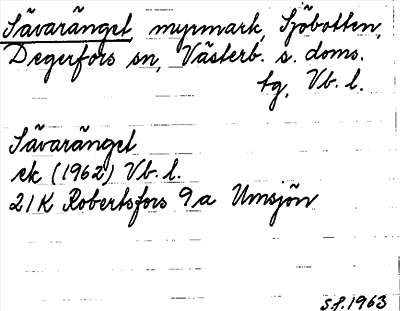 Sävaränget myrmark, Sjöbotten,
Degerfors sn, Västerb. s. doms.
tg, Vb. l.
Sävaränget
ek (1962) Vb. l.
21K Robertsfors 9a Umsjön
S.P. 1963